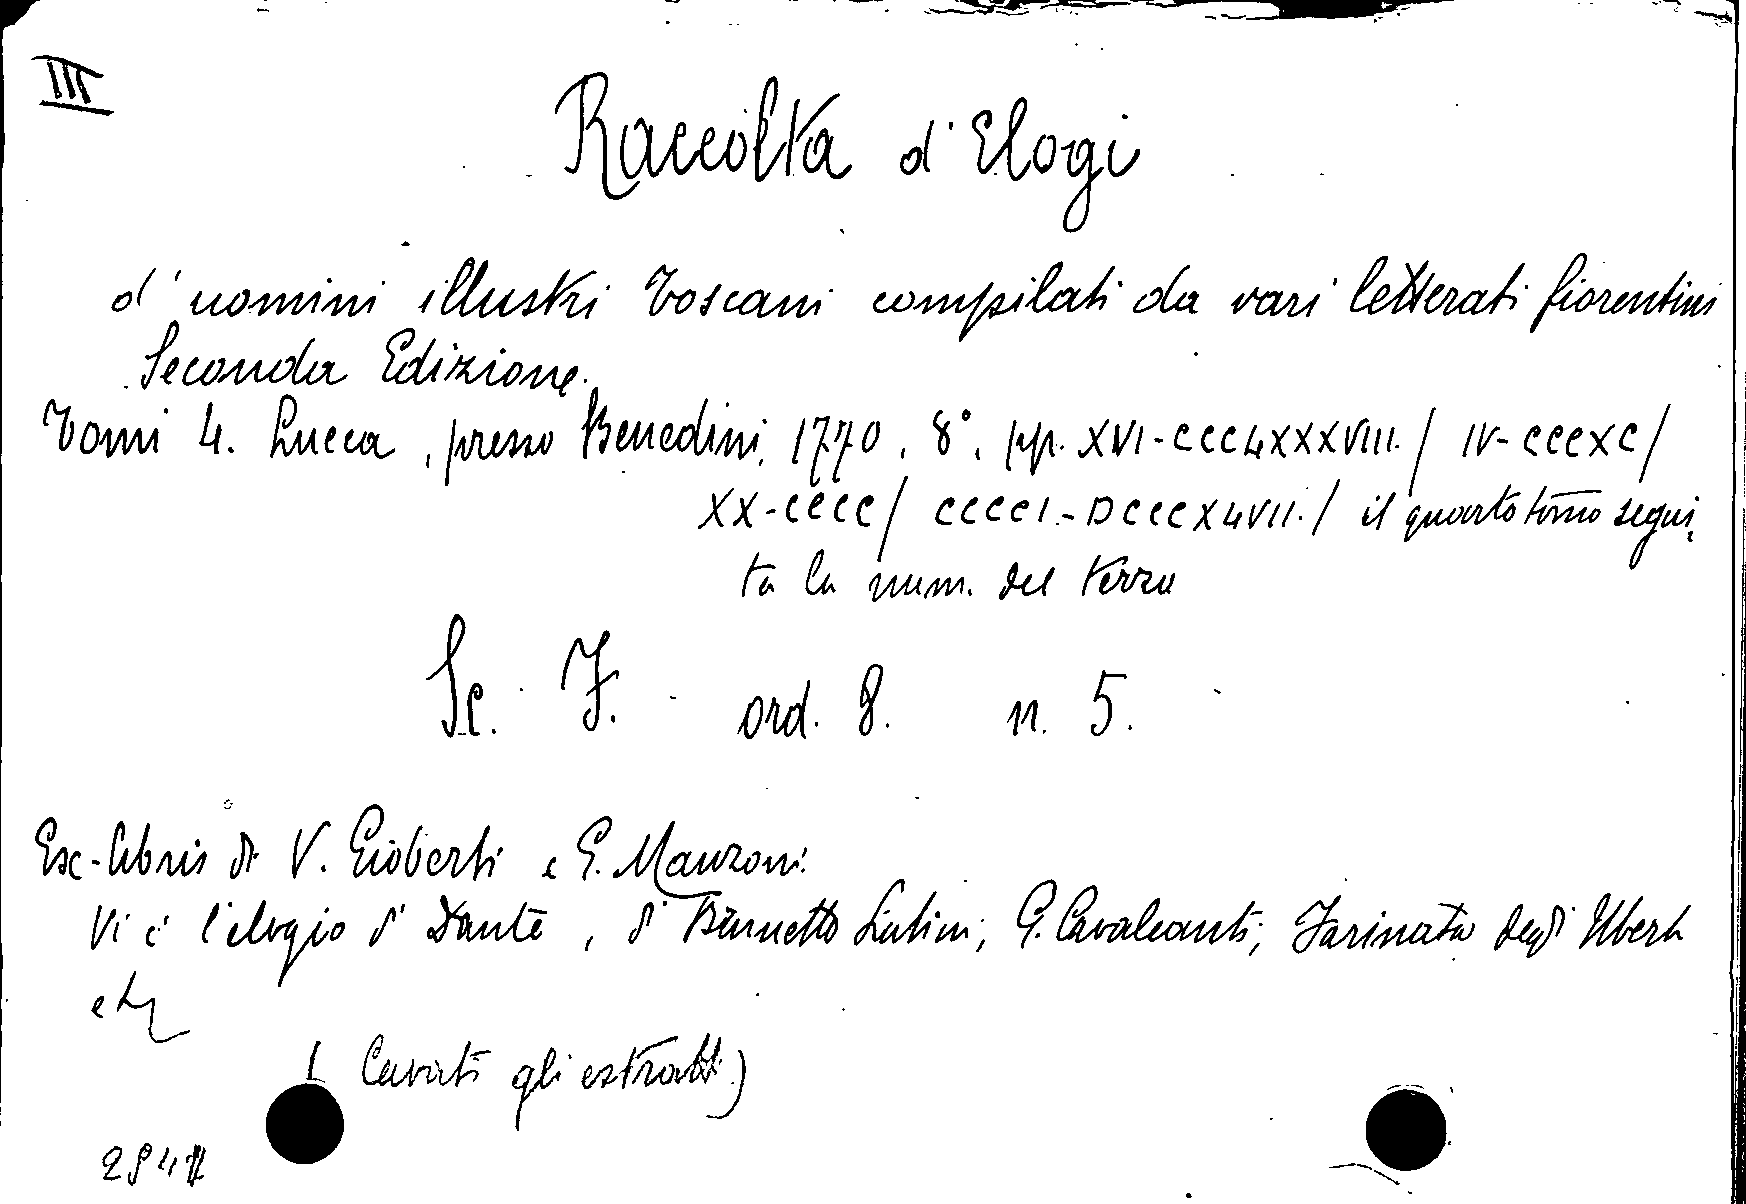 III
Raccolta d'Elogi
d'uomini illustri Toscani compilati da vari letterati fiorentini
Seconda Edizione.
Tomi 4. Lucca, presso Benedini, 1770. 8°. pp. XVI-CCCLXXXVIII./ IV-CCCXC/
XX-CCCC/ CCCCI.-DCCCXLVII./ il quarto tomo segui,
ta la num. del terzo
Sc. F. ord. 8. n. 5.
Ex-libris di V. Gioberti e G. Manzoni.
Vi è l'elogio di Dante, di Brunetto Latini, G. Cavalcanti, Farinata degli Uberti
etc
( Cavati gli estratti)